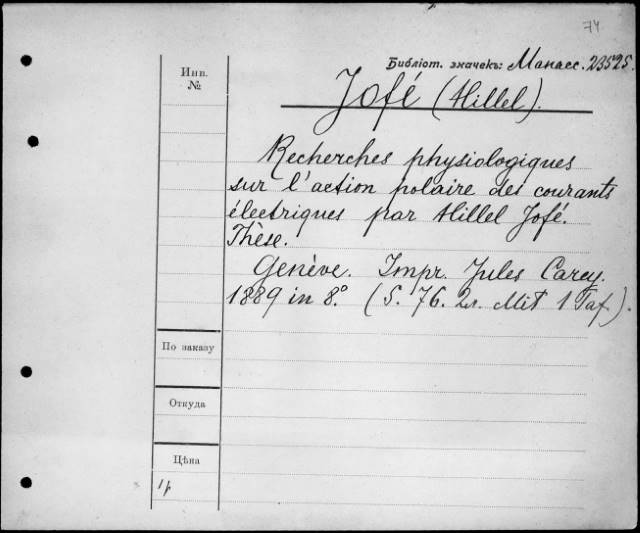 74
Библіот. значекъ: Манасс. 23525.
Инв.
№
Jofé (Hillel).
Recherches physiologiques
sur l'action polaire des courants
électriques par Hillel Jofé.
Thèse.
Genève. Impr. Jules Carey.
1889 in 8.° (S. 76. 2л. Mit 1 Taf.).
По заказу
Откуда
Цѣна
1р